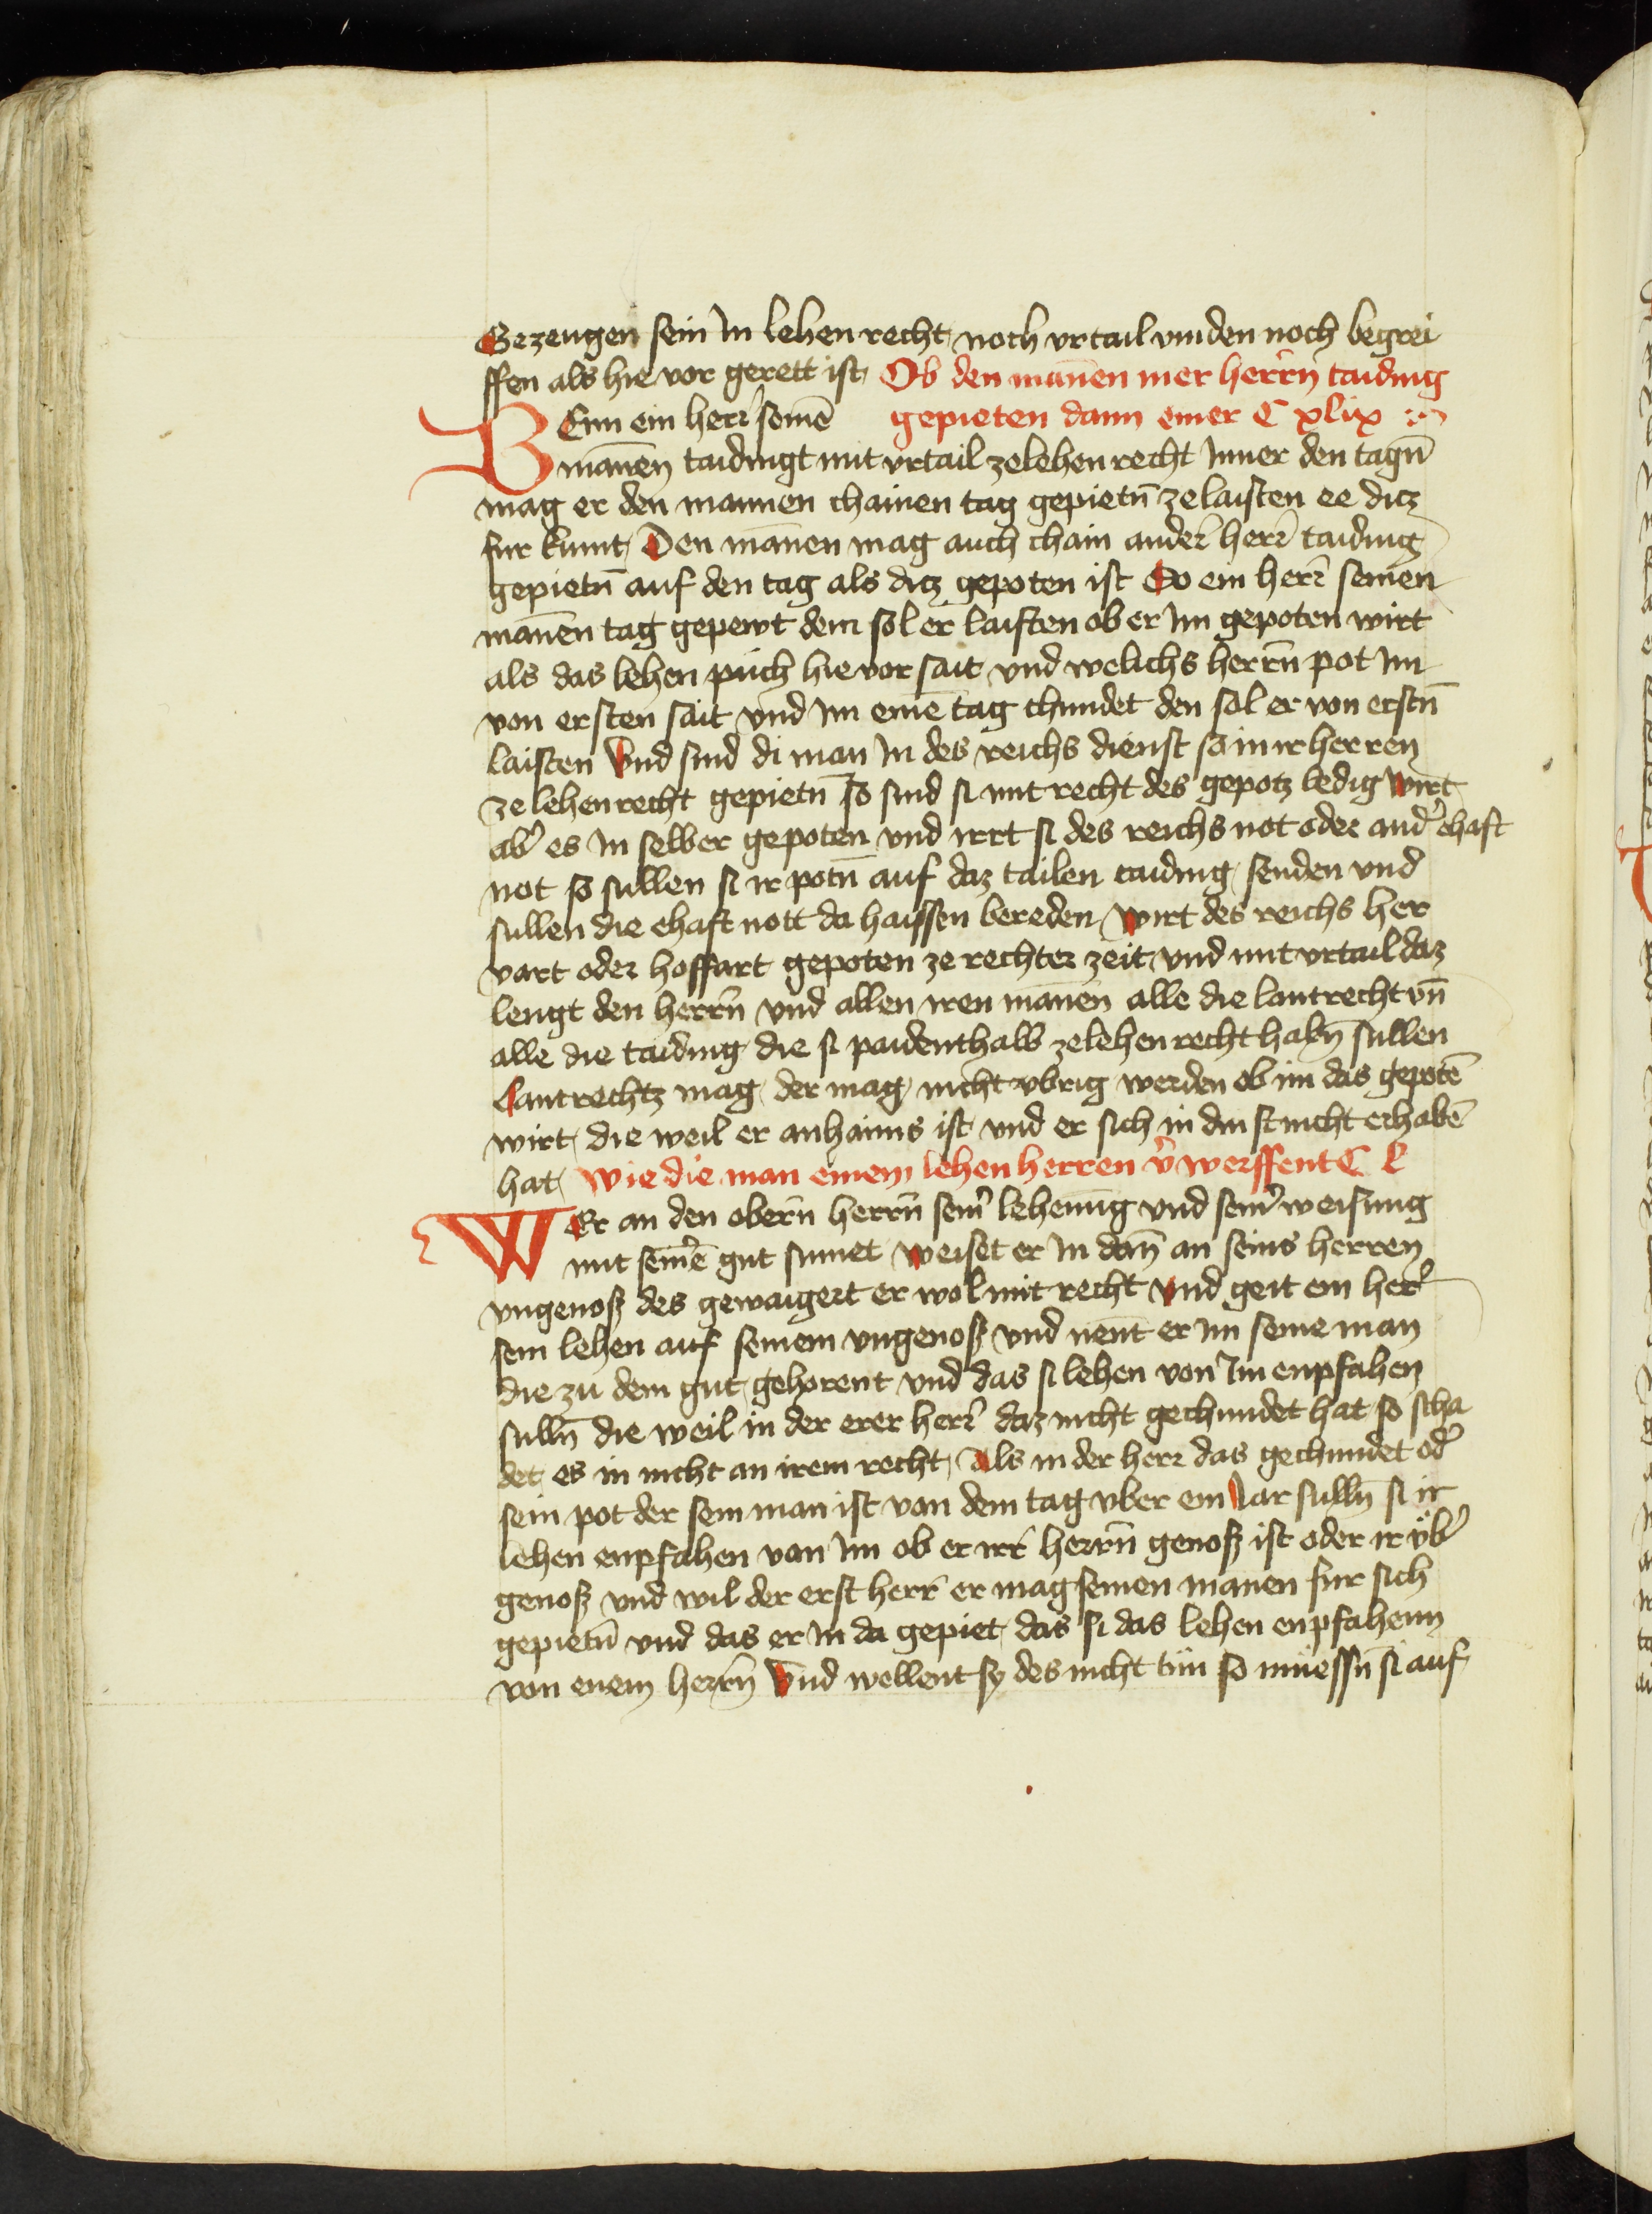 Gezeugen sein In lehenrecht noch vrtail vinden noch begrei
ffen als hie vor gerett ist Ob den mānen mer herrn̄ taiding
gepieten dann einer C xlix
WEnn ein herr seinē
mānen taidingt mit vrtail zelehenrecht Inner den tagn̄
mag er den mannen chainen tag gepietn̄ zelaisten ee dicz
fur kumt Den mānen mag auch chain anderr̄ herr̄ taiding
gepietn̄ auf den tag als dicz gepoten ist So ein herr̄ seinen
mānen tag gepewt dem sol er laisten ob er Im gepoten wirt
als das lehen puch hie vor sait vnd welichs herrn̄ pot Im
von ersten sait vnd Im einē tag chundet den sol er von erstn̄
laisten Vnd sind di man In des reichs dienst so in ir herren
ze lehenrecht gepietn̄ so sind si mit recht des gepotz ledig wirt
ab̾ es In selber gepoten vnd irrt si des reichs not oder and̾ ehaft
not so sullen si ir potn̄ auf daz tailen taiding senden vnd
sullen die ehaft nott da haissen bereden wirt des reichs her
vart oder hoffart gepoten ze rechter zeit vnd mit vrtail daz
lengt den herrn̄ vnd allen iren mānen alle die lantrecht vn̄
alle die taiding die si paidenthalb zelehenrecht habn̄ sullen
Lantrechtz mag der mag nicht vbrig werden ob im das gepotē
wirt die weil er anhaims ist vnd er sich in dinst nicht erhabē
hat wie die man einem lehen herren v̾werffent C L
WEr an den obern̄ herrn̄ sein̾ lehenūg vnd sein̾ weisung
mit seinē gut sumet weiset er In dan̄ an seins herren
vngenoß des gewaigert er wol mit recht vnd geit ein herr̄
sein lehen auf seinem vngenoß vnd nent er im seine man
die zu dem gut gehorent vnd das si lehen von Im enpfahen
sulln̄ die weil in der erer herr̄ daz nicht gechundet hat so scha
det es in nicht an irem recht Als in der herr das gechundet od̾
sein pot der sein man ist von dem tag vber ein Iar sulln̄ si ir
lehen enpfahen von Im ob er irr herrn̄ genoß ist oder ir vb̾
genoß vnd wil der erst herr er mag seinen manen fur sich
gepietn̄ vnd das er In da gepiet das si das lehen enpfahenn
von enem herrn̄ Vnd wellent sy des nicht tun so muessn̄ si auf